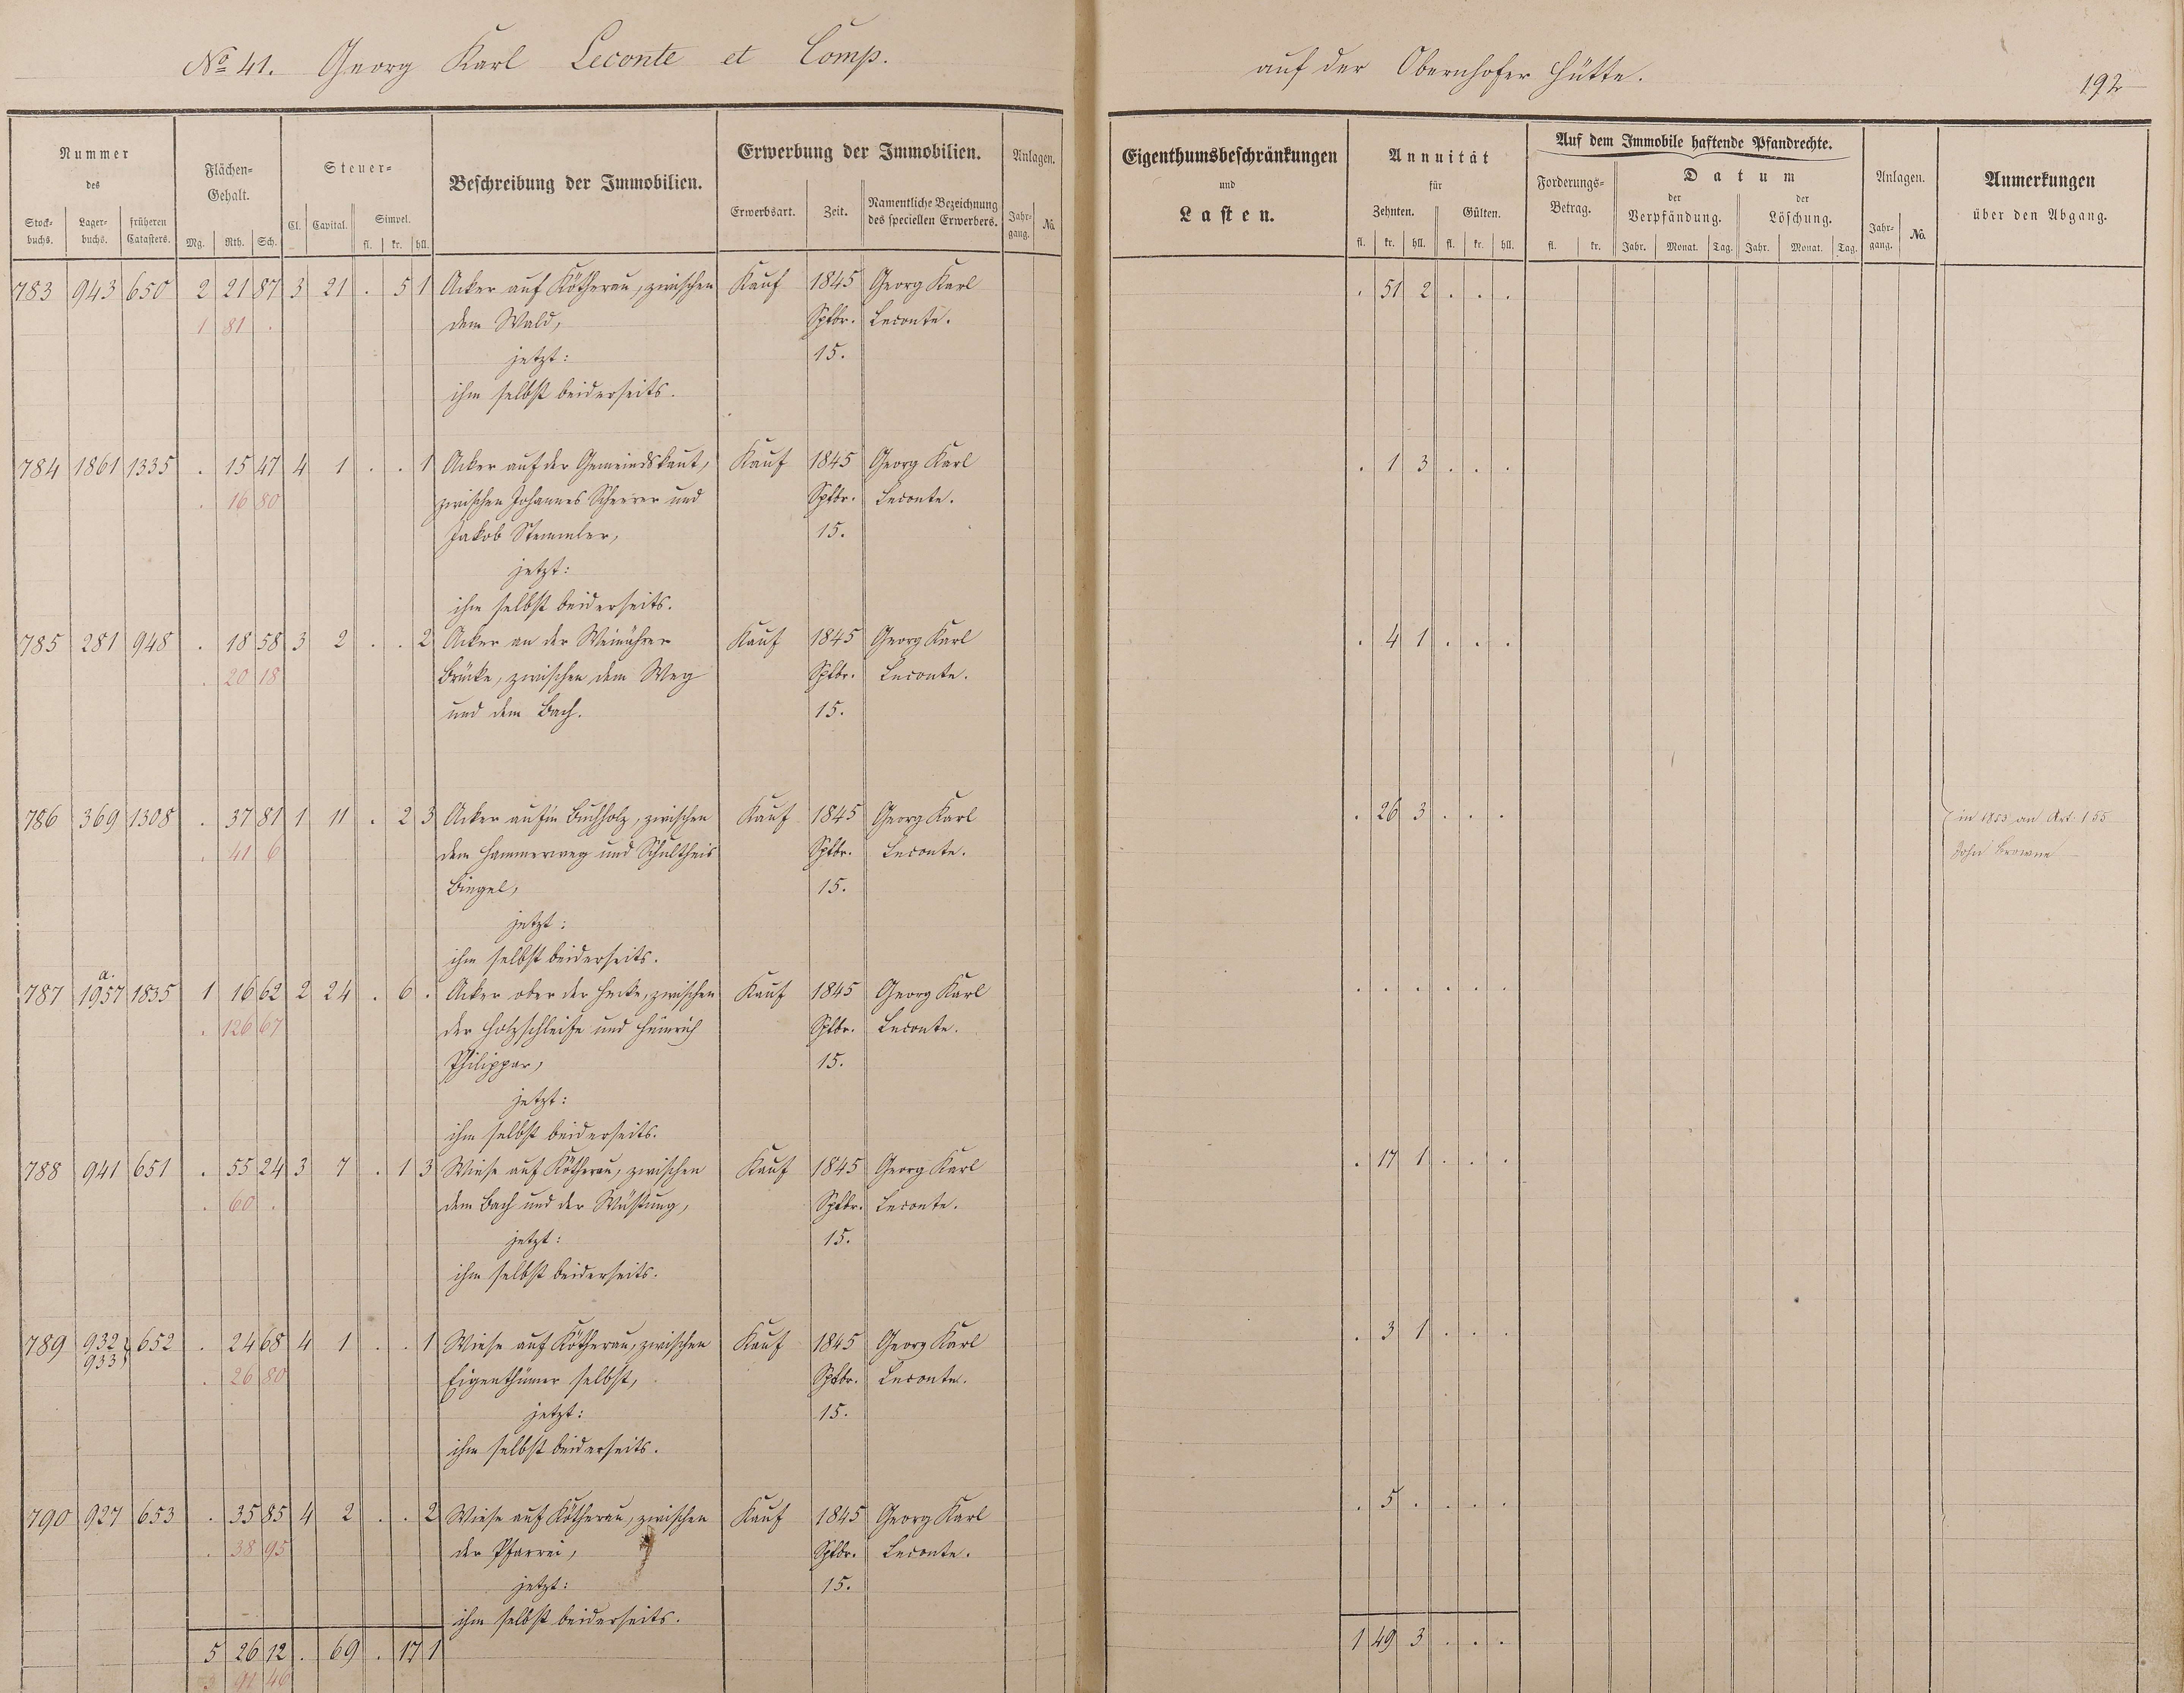 No 41. Georg Karl Leconte et Comp.
auf der Obernhofer Hütte.
192
Nummer des
Flächen-Gehalt.
Steuer-
Beschreibung der Immobilien.
Erwerbung der Immobilien.
Anlagen.
Stock-buchs. Lager-buchs. früheren Catasters. Mg. Rth. Sch. Cl. Capital. Simpel. fl. kr. hll.
Erwerbsart. Zeit. Namentliche Bezeichnung des speciellen Erwerbers. Jahr-gang. No.
Eigenthumsbeschränkungen und Lasten.
Annuität für
Zehnten. Gülten.
fl. kr. hll. fl. kr. hll.
Auf dem Immobile haftende Pfandrechte.
Forderungs-Betrag. fl. kr.
Datum
der Verpfändung. der Löschung.
Jahr. Monat. Tag. Jahr. Monat. Tag.
Anlagen. Jahr-gang. No.
Anmerkungen über den Abgang.
783 943 650 2 21 87 3 21 . 5 1 Acker auf Kötherau, zwischen Kauf 1845 Georg Karl . 51 2 . . .
1 81 . dem Wald, Sptbr. Leconte.
jetzt: 15.
ihm selbst beiderseits.
784 1861 1335 . 15 47 4 1 . . 1 Acker auf der Gemeindskaut, Kauf 1845 Georg Karl . 1 3 . . .
. 16 80 zwischen Johannes Scherer und Sptbr. Leconte.
Jakob Stemmler, 15.
jetzt:
ihm selbst beiderseits.
785 281 948 . 18 58 3 2 . . 2 Acker an der Weinährer Kauf 1845 Georg Karl . 4 1 . . .
. 20 18 Brücke, zwischen dem Weg Sptbr. Leconte.
und dem Bach. 15.
786 369 1308 . 37 81 1 11 . 2 3 Acker auf'm Buchholz, zwischen Kauf 1845 Georg Karl . 26 3 . . . in 1853 an Art: 155
. 41 6 dem Hammerweg und Schultheis Sptbr. Leconte. John Browne
Bingel, 15.
jetzt:
ihm selbst beiderseits.
787 a. 1957 1835 1 16 62 2 24 . 6 . Acker ober der Hecke, zwischen Kauf 1845 Georg Karl . . . . . .
. 126 67 der Holzschleife und Heinrich Sptbr. Leconte.
Philippar, 15.
jetzt:
ihm selbst beiderseits.
788 941 651 . 55 24 3 7 . 1 3 Wiese auf Kötherau, zwischen Kauf 1845 Georg Karl . 17 1 . . .
. 60 . dem Bach und der Wüstung, Sptbr. Leconte.
jetzt: 15.
ihm selbst beiderseits.
789 932 933 652 . 24 68 4 1 . . 1 Wiese auf Kötherau, zwischen Kauf 1845 Georg Karl . 3 1 . . .
. 26 80 Eigenthümer selbst, Sptbr. Leconte.
jetzt: 15.
ihm selbst beiderseits.
790 927 653 . 35 85 4 2 . . 2 Wiese auf Kötherau, zwischen Kauf 1845 Georg Karl . 5 . . . .
. 38 95 der Pfarrei, Sptbr. Leconte.
jetzt: 15.
ihm selbst beiderseits.
5 26 12 . 69 . 17 1 1 49 3 . . .
91 46